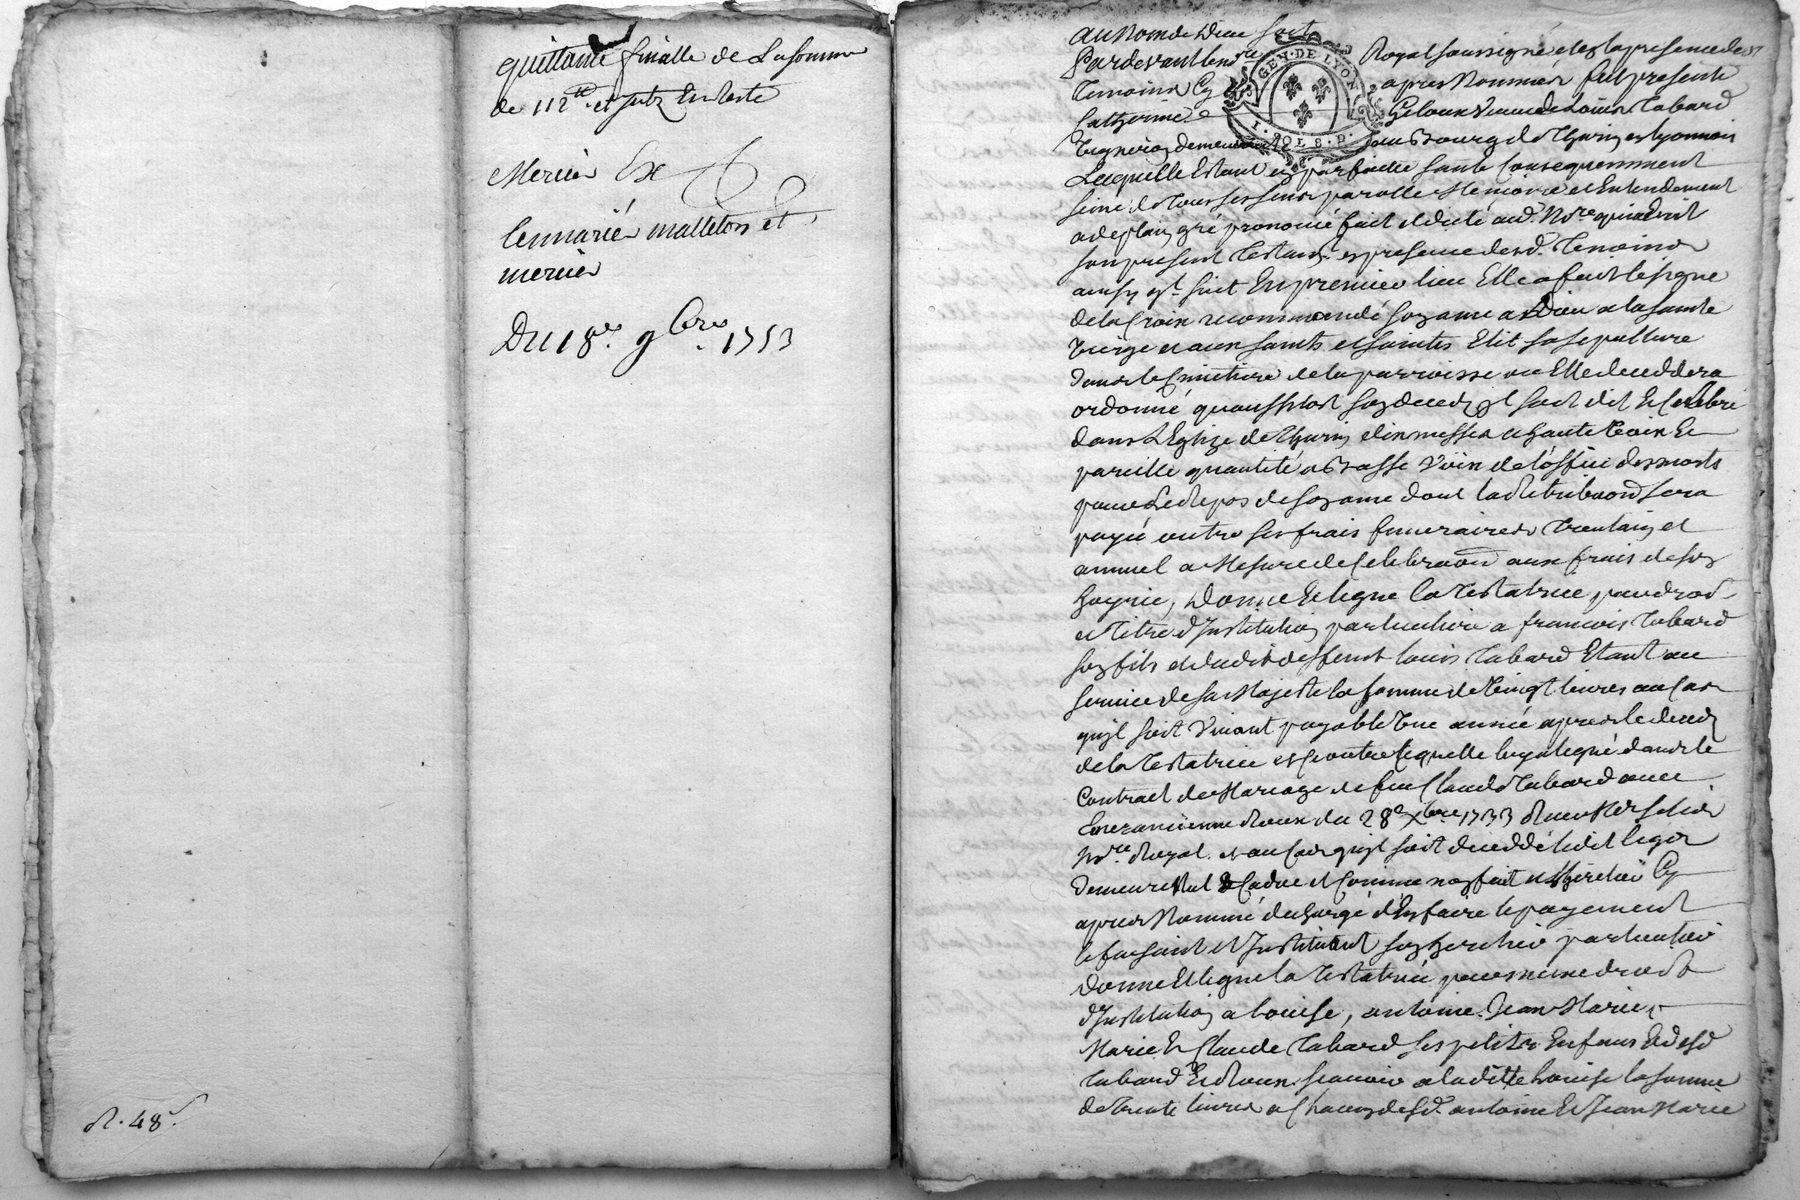 quittance finalle de La somme
de 112 ^tt et Intz En Reste
Mercier Ex
les mariés malleton et
mercier
Du 18.^e 9^bre 1753
R. 48^s
Au Nom de Dieu soit
Pardevant le no^re Royal soussigné et en la presence des
Temoins Cy apres Nommés fut presente
Catherine Geloux Veuve de Louis Tabard
Vigneron demeurant au Bourg de Thurin en lyonnois
Laquelle Estant en parfaitte santé Consequemment
saine de tous ses sens parolle Memoire et Entendement
a de plain gré prononcé fait et dicté aud. No^re qui a Ecrit
son present Testam^t en presence desd. Temoins
ainsy q^l suit En premier lieu Elle a fait le signe
de la Croix recommandé son ame a Dieu a la sainte
Vierge et aux saints et saintes Elit sa sepulture
dans le Cimetiere de la parroisse ou Elle deceddera
ordonne qu'aussitost son deced il soit dit et Celebré
dans L'Eglize de Thurin dix messes a haute Voix Et
pareille quantité a Basse Voix de l'office des morts
pour Le Repos de son ame dont la Retribuon sera
payé outre ses frais funeraires Trentain et
annuel a Mesure de Celebraon aux frais de son
hoyrie, Donne Et legue la Testatrice par droit
et Titre d'Institution particuliere a francois Tabard
son fils et dudit deffunt Louis Tabard Etant au
service de sa Majesté la somme de Vingt livres au Cas
qu'il soit Vivant payable Une année apres le deced
de la Testatrice et outre Ce quelle luy a legué dans le
Contract de Mariage de feu Claude Tabard avec
Emerancienne Roux du 28^e X^bre 1733 Receu M^e
No^re Royal. et au Cas qu'il soit decedde ledit legs
demeure Nul & Caduc et Comme non fait et l'heritier Cy
apres Nommé dechargé d'En faire le payement
le faisant et Instituant son heritier particulier
Donne Et legue la Testatrice par meme droit
d'Institution a Louise, antoine. Jean Marie,
Marie Et Claude Tabard ses petits Enfans Et desd
Tabard Et Roux. scavoir a laditte Louise la somme
de Trente livres a Chacun desd. antoine Et Jean Marie
GEN. DE LYON